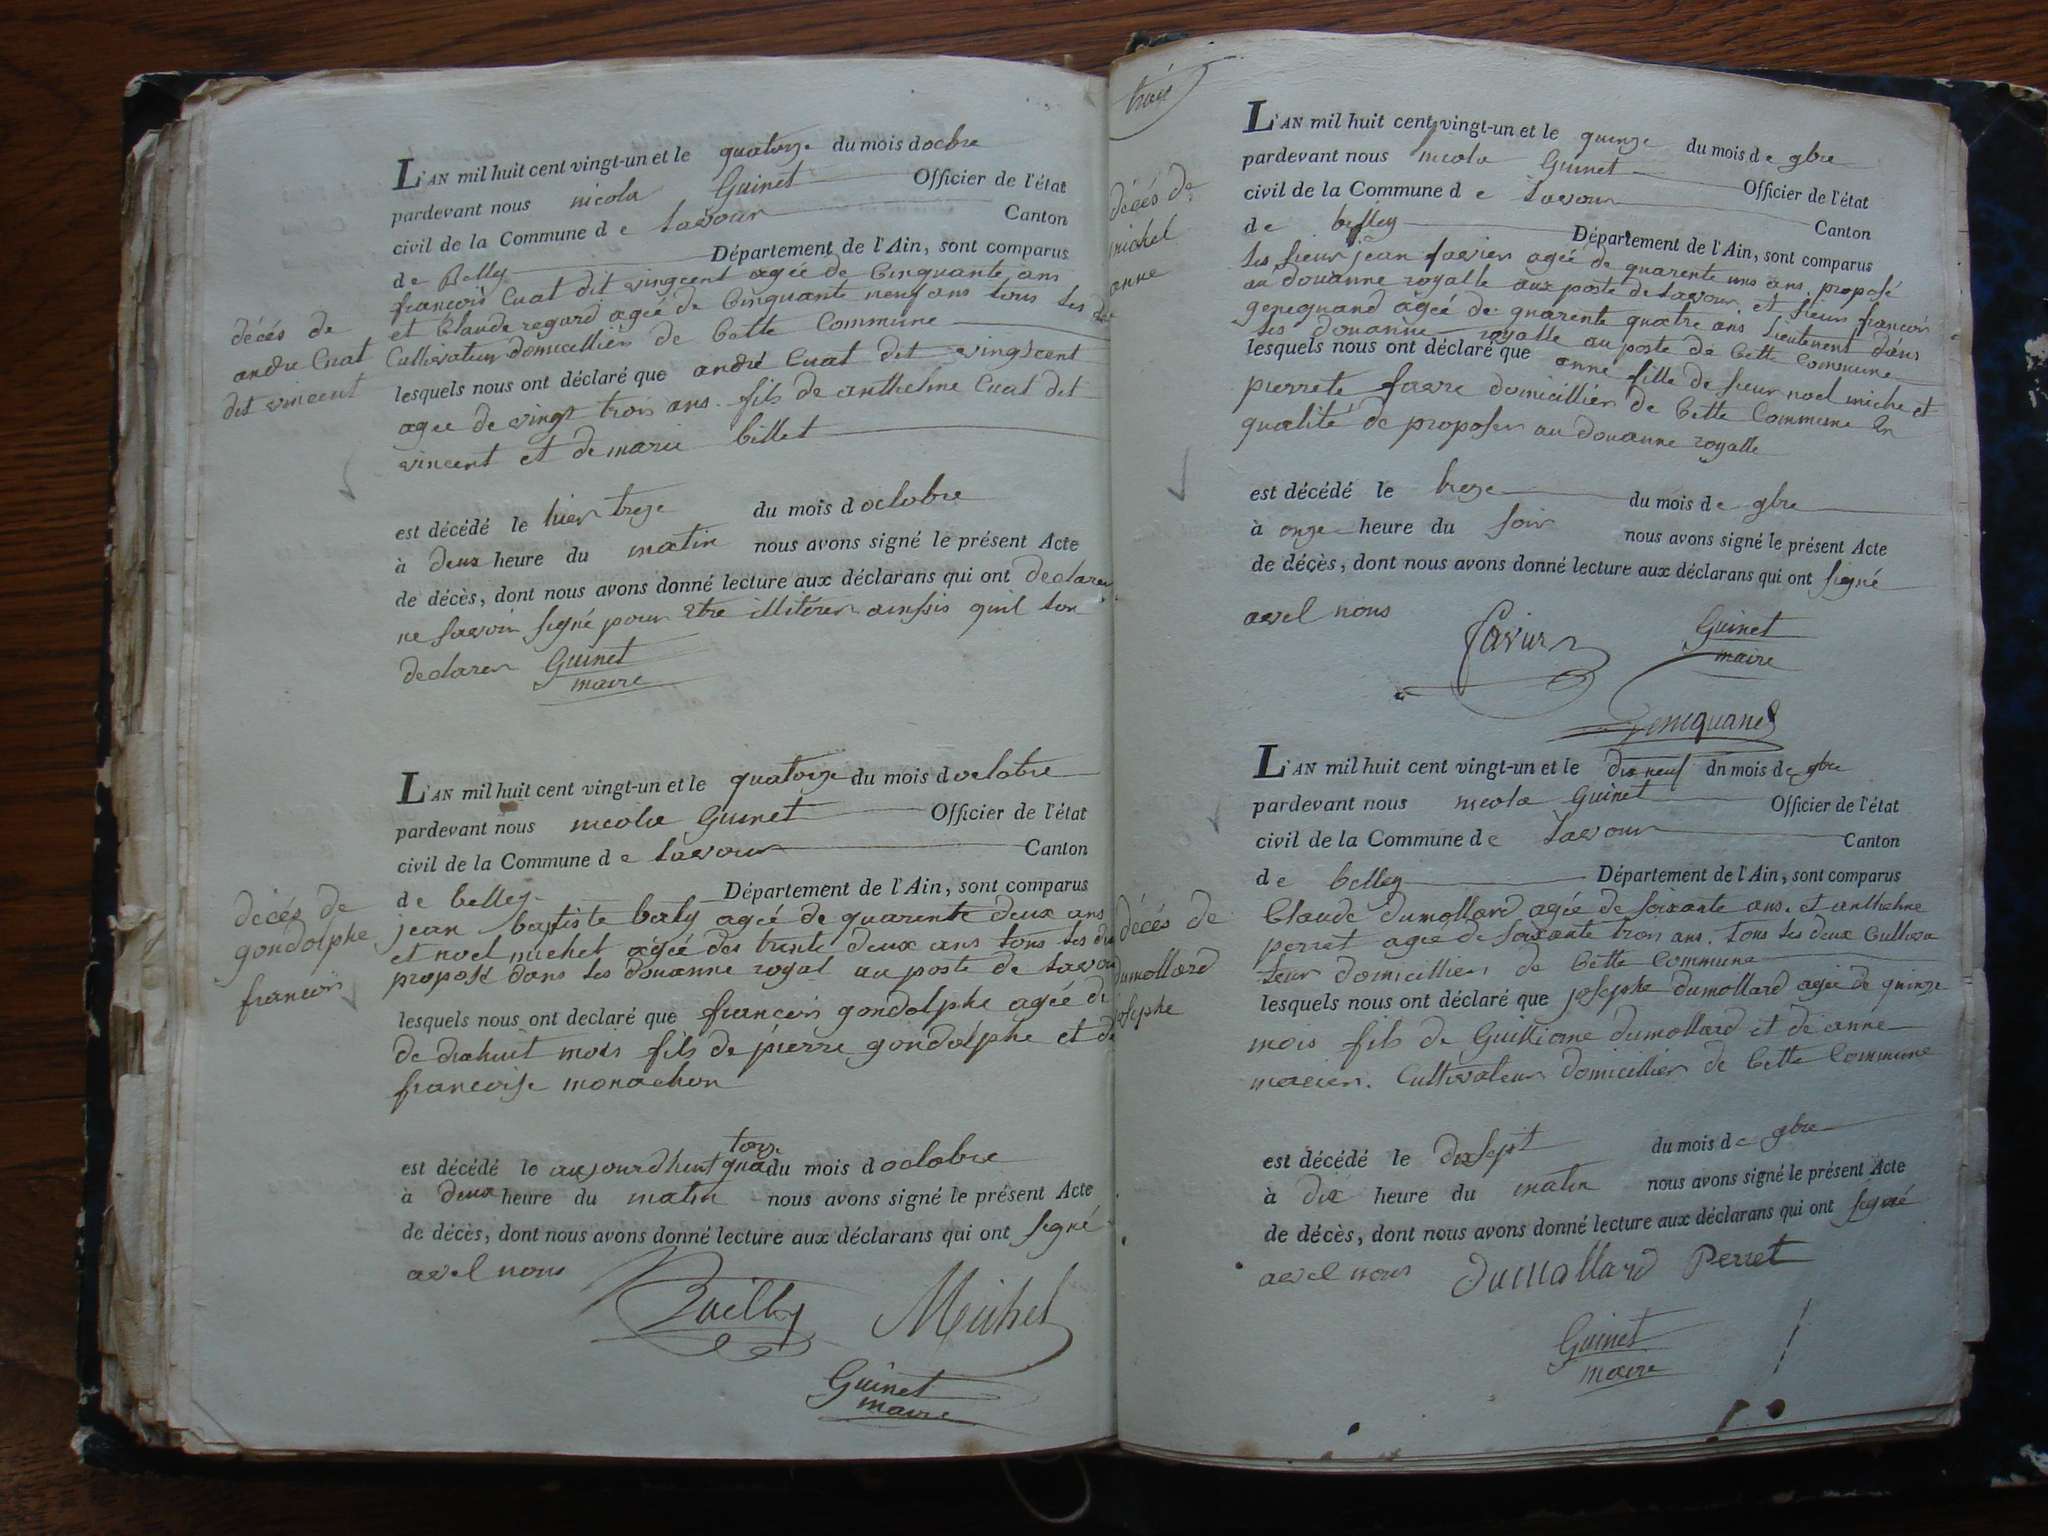 L'AN mil huit cent vingt-un et le quatorze du mois doctbre
pardevant nous nicola Guinet Officier de l'état
civil de la Commune d e Lavour Canton
de Belly Département de l'Ain, sont comparus
françois Cuat dit vingcent agée de Cinquante ans
et Claude regard agée de Cinquante neuf ans tous les
Cultivateur domicillier de Cette Commune
lesquels nous ont déclaré que andré Cuat dit vingscent
agée de vingt trois ans fils de anthelme Cuat dit
vincent et de marie billet
décés de
andre Cuat
dit vincent
est décédé le hier treze du mois d octobre
à deux heure du matin nous avons signé le présent Acte
de décès, dont nous avons donné lecture aux déclarans qui ont declarer
ne savoir signé pour etre illitérer ainssis quil lon
declarer Guinet
maire
L'AN mil huit cent vingt-un et le quatorze du mois d octobre
pardevant nous nicola Guinet Officier de l'état
civil de la Commune d e Lavour Canton
de belley Département de l'Ain, sont comparus
jean baptiste baly agée de quarente deux ans
et noel michel agée des trente deux ans tous les
proposé dans les douanne royal au poste de Lavour
lesquels nous ont declaré que françois gondolphe agée de
de dixhuit mois fils de pierre gondolphe et de
francoise monachon
décés de
gondolphe
francois
torze
est décédé le aujourdhuit qua du mois d octobre
à deux heure du matin nous avons signé le présent Acte
de décès, dont nous avons donné lecture aux déclarans qui ont signé
avel nous
Bailly Michel
Guinet
maire
L'AN mil huit cent vingt-un et le quinze du mois de gbre
pardevant nous nicola Guinet Officier de l'état
civil de la Commune d e Lavour Canton
de belley Département de l'Ain, sont comparus
les sieur jean favier agée de quarente uns ans, proposé
au douanne royalle aux poste de Lavour et sieur francois
genequand agée de quarente quatre ans lieutenent dans
les douanne royalle au poste de Cette Commune
lesquels nous ont déclaré que anne fille de sieur noel miche et
pierrete favre domicillier de Cette Commune En
qualité de proposer au douanne royalle
décés de
michel
anne
est décédé le treze du mois de gbre
à onze heure du soir nous avons signé le présent Acte
de décès, dont nous avons donné lecture aux déclarans qui ont signé
avel nous
Guinet
maire
L'AN mil huit cent vingt-un et le dix neuf du mois de gbre
pardevant nous nicola Guinet Officier de l'état
civil de la Commune de Lavour Canton
de belley Département de l'Ain, sont comparus
Claude dumollard agée de soixante ans. et anthelme
perret agée de soixante trois ans. tous les deux Cultiva
teur domicillier de Cette Commune
lesquels nous ont déclaré que josephe dumollard agée de quinze
mois fils de Guilliome dumollard et de anne
Cultivateur domicillier de Cette Commune
décés de
dumollard
josephe
est décédé le dixsept du mois de gbre
à dix heure du matin nous avons signé le présent Acte
de décès, dont nous avons donné lecture aux déclarans qui ont signé
avel nous Dumollard Perret
Guinet
maire